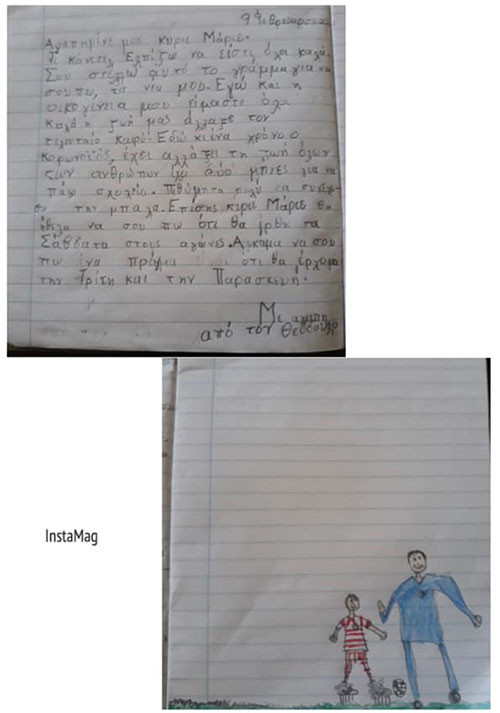 9 Φεβρουαρίου
Αγαπημένε μου κύριε Μάριε.
Τι κάνεις Ελπίζω να είσαι όλα καλά.
Σου στέλλω αυτό το γράμμα για να
σου πω, τα νεα μου. Εγώ και η
οικογένεια μου είμαστε όλοι
καλά η ζωή μας άλλαξε τον
τελευταίο καιρό. Εδώ κι ένα χρόνο ο
κορωνοϊός, έχει αλλάξει τη ζωή όλων
των ανθρώπων δύο μήνες για να
πάω σχολείο. πολύ να συνεχί
σω την μπάλα. Επίσης κύριε Μάριε θα
ήθελα να σου πω ότι θα έρθω τα
Σάββατα στους αγώνες. Ακόμα να σου
πω ένα πράγμα ότι θα έρχομαι
την Τρίτη και την Παρασκευή.
Με αγάπη
από τον Θεόδουλο
InstaMag